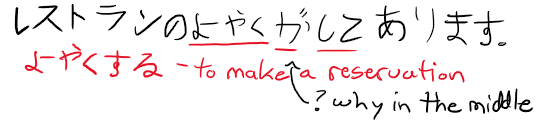 レストランのよやくがしてあります。
よやくする - to make a reservation
? why in the middle